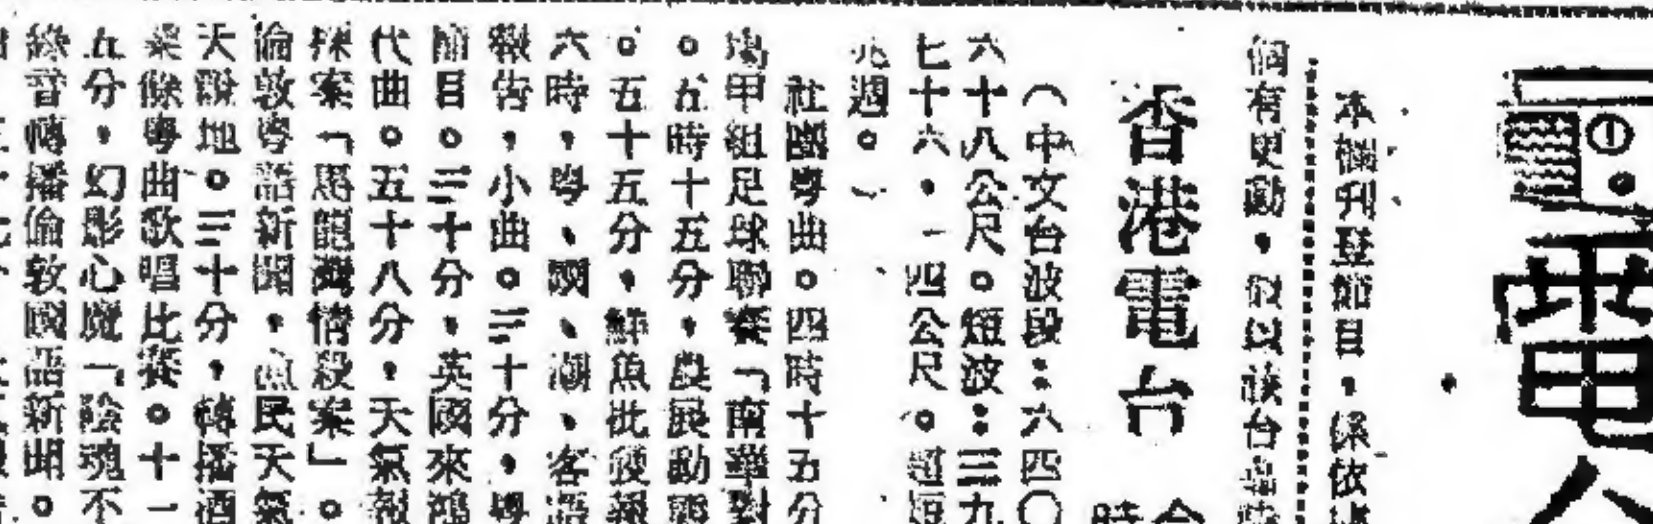 電
本欄刊登節目，係依
個有更動，概以該台臨時
香港電台
（中文台波段：六四〇
六十八公尺。短波：三九
七十六，一四公尺。超短
兆週。）
社團粵曲。四時十五分
場甲組足球聯賽「南華對
。五時十五分，農展勘
。五十五分，鮮魚批發報
六時，粵、國、潮、客語
報告，小曲。三十分，粵
節目。三十分，英國來鴻
代曲。五十八分，天氣報
探案「馬龍灣情殺案」。
倫敦粵語新聞，魚民天氣
天說地。三十分，轉播酒
業餘粵曲歌唱比賽。十一
五分，幻影心魔「陰魂不
綠音轉播倫敦國語新聞。